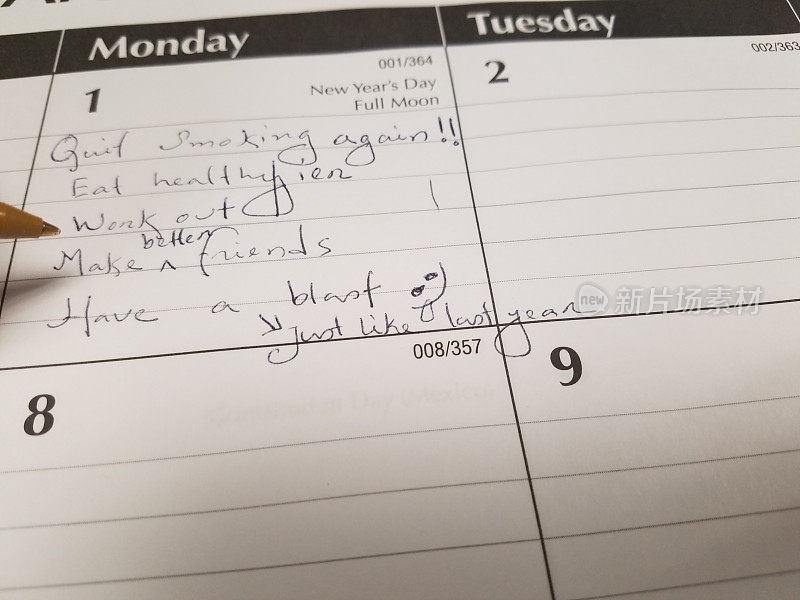 Monday
Tuesday
001/364
002/363
1
New Year's Day
Full Moon
2
Quit smoking again!!
Eat healthy ier
Work out
better
Make ^ friends
Have a blast
just like last year
new 新片场素材
008/357
8
9